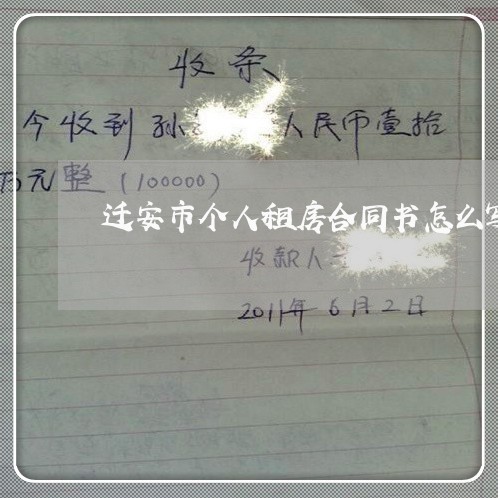 收条
今收到孙 人民币壹拾
万元整（100000）
迁安市个人租房合同书怎么写
收款人
2011年6月2日